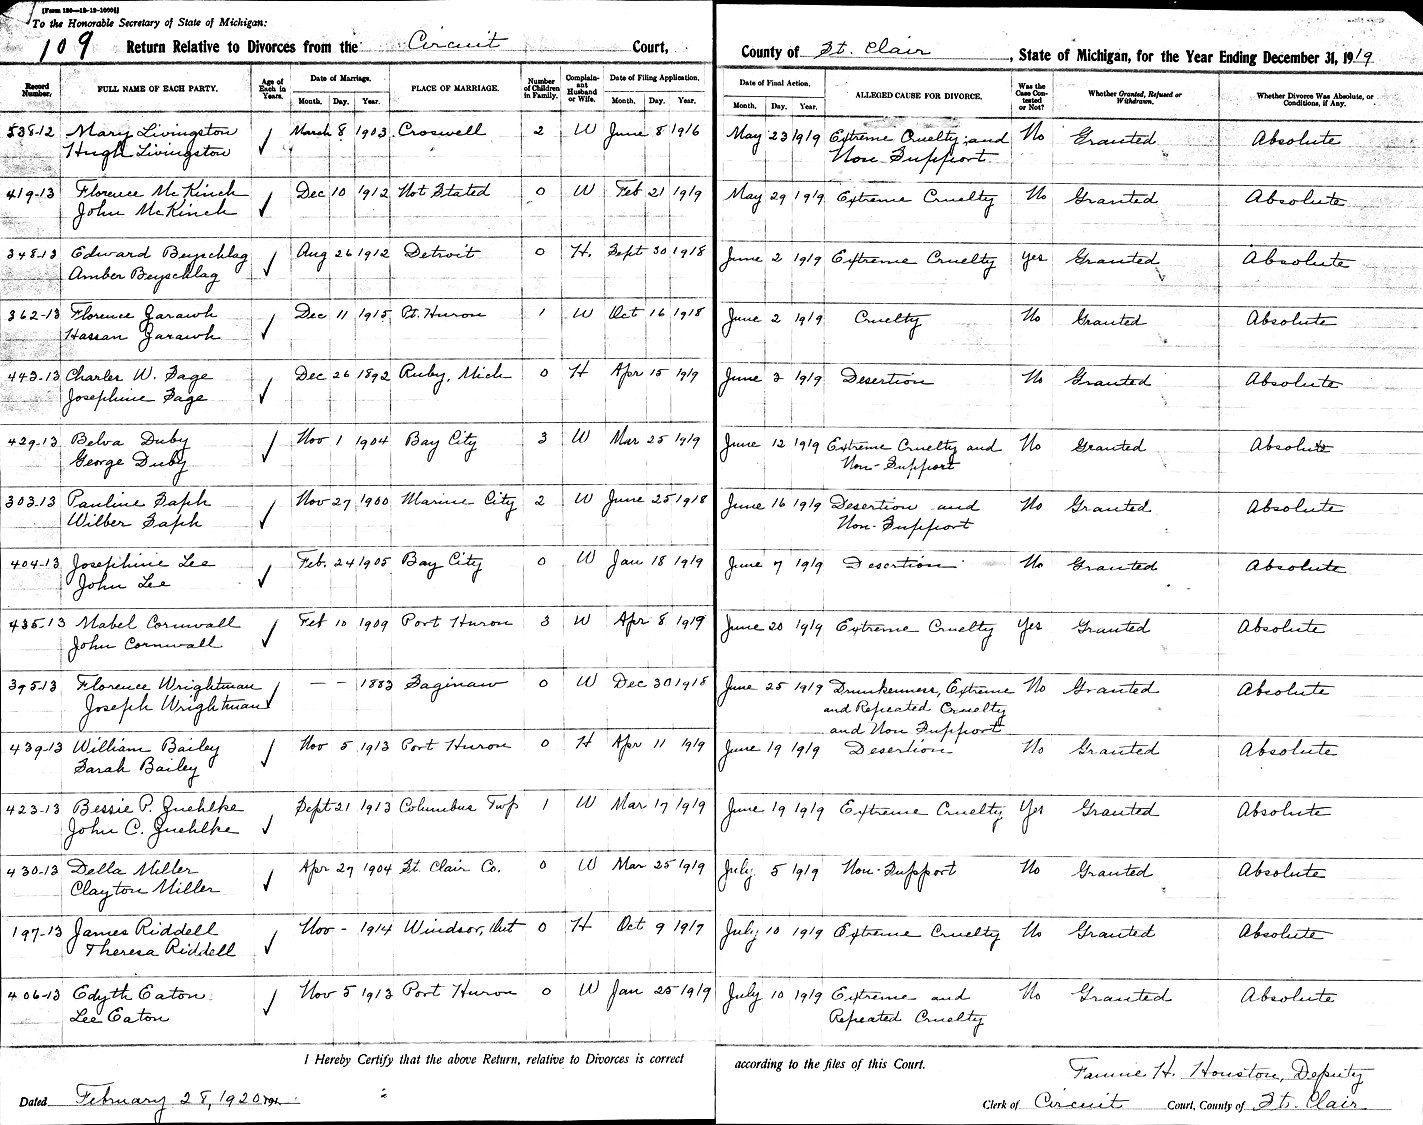 [Form 150—12-12-1000]
To the Honorable Secretary of State of Michigan:
109 Return Relative to Divorces from the Circuit Court, County of St. Clair, State of Michigan, for the Year Ending December 31, 1919
Record Number. FULL NAME OF EACH PARTY. Age of Each in Years. Date of Marriage. Month. Day. Year. PLACE OF MARRIAGE. Number of Children in Family. Complainant Husband or Wife. Date of Filing Application. Month. Day. Year. Date of Final Action. Month. Day. Year. ALLEGED CAUSE FOR DIVORCE. Was the Case Contested or Not? Whether Granted, Refused or Withdrawn. Whether Divorce Was Absolute, or Conditions, if Any.
538-12 Mary Livingston ✓ March 8 1903 Croswell 2 W June 8 1916 May 23 1919 Extreme Cruelty and No Granted Absolute
Hugh Livingston Non Support
419-13 Florence McKinch ✓ Dec 10 1912 Not Stated 0 W Feb 21 1919 May 29 1919 Extreme Cruelty No Granted Absolute
John McKinch
348-13 Edward Beyschlag ✓ Aug 26 1912 Detroit 0 H. Sept 30 1918 June 2 1919 Extreme Cruelty yes Granted Absolute
Amber Beyschlag
362-13 Florence Jarawh ✓ Dec 11 1915 Pt. Huron 1 W Oct 16 1918 June 2 1919 Cruelty No Granted Absolute
Hassan Jarawh
443-13 Charles W. Sage ✓ Dec 26 1892 Ruby, Mich 0 H Apr 15 1919 June 3 1919 Desertion No Granted Absolute
Josephine Sage
429-13 Belva Duby ✓ Nov 1 1904 Bay City 3 W Mar 25 1919 June 12 1919 Extreme Cruelty and No Granted Absolute
George Duby Non-Support
303-13 Pauline Saph ✓ Nov 27 1900 Marine City 2 W June 25 1918 June 16 1919 Desertion and No Granted Absolute
Wilber Saph Non-Support
404-13 Josephine Lee ✓ Feb. 24 1905 Bay City 0 W Jan 18 1919 June 7 1919 Desertion No Granted Absolute
John Lee
435-13 Mabel Cornwall ✓ Feb 10 1909 Port Huron 3 W Apr 8 1919 June 20 1919 Extreme Cruelty Yes Granted Absolute
John Cornwall
395-13 Florence Wrightman ✓ — — 1883 Saginaw 0 W Dec 30 1918 June 25 1919 Drunkenness, Extreme No Granted Absolute
Joseph Wrightman and Repeated Cruelty
and Non Support
439-13 William Bailey ✓ Nov 5 1913 Port Huron 0 H Apr 11 1919 June 19 1919 Desertion No Granted Absolute
Sarah Bailey
423-13 Bessie P. Zuehlke ✓ Sept 21 1913 Columbus Twp 1 W Mar 17 1919 June 19 1919 Extreme Cruelty Yes Granted Absolute
John C. Zuehlke
430-13 Della Miller ✓ Apr 27 1904 St. Clair Co. 0 W Mar 25 1919 July 5 1919 Non-Support No Granted Absolute
Clayton Miller
197-13 James Riddell ✓ Nov - 1914 Windsor, Ont 0 H Oct 9 1917 July 10 1919 Extreme Cruelty No Granted Absolute
Theresa Riddell
406-13 Edyth Eaton ✓ Nov 5 1913 Port Huron 0 W Jan 25 1919 July 10 1919 Extreme and No Granted Absolute
Lee Eaton Repeated Cruelty
I Hereby Certify that the above Return, relative to Divorces is correct according to the files of this Court.
Fannie H. Houston, Deputy
Dated February 28, 1920 191 Clerk of Circuit Court, County of St. Clair